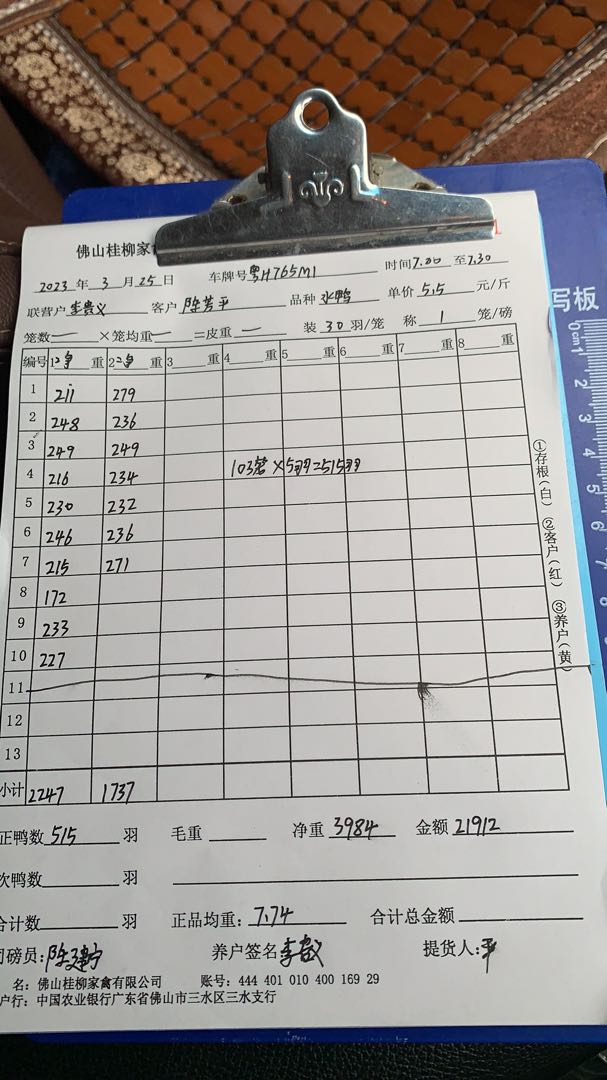 佛山桂柳家
2023 年 3 月 25 日 车牌号粤H765M1 时间7.00 至7.30
联营户 李贵义 客户 陈芳平 品种 水鸭 单价 5.5 元/斤
笼数 — ×笼均重 — =皮重 — 装 30 羽/笼 称 1 笼/磅
编号 1 重 2 重 3 重 4 重 5 重 6 重 7 重 8 重
1 211 279
2 248 236
3 249 249
4 216 234 103笼×5羽=515羽
5 230 232
6 246 236
7 215 271
8 172
9 233
10 227
11
12
13
小计 2247 1737
正鸭数 515 羽 毛重 净重 3984 金额 21912
次鸭数 羽
合计数 羽 正品均重: 7.74 合计总金额
司磅员: 养户签名 李贵义 提货人: 平
名: 佛山桂柳家禽有限公司 账号: 444 401 010 400 169 29
户行: 中国农业银行广东省佛山市三水区三水支行
①存根(白) ②客户(红) ③养户(黄)
写板
0 1cm 2 3 4 5 6 7 8